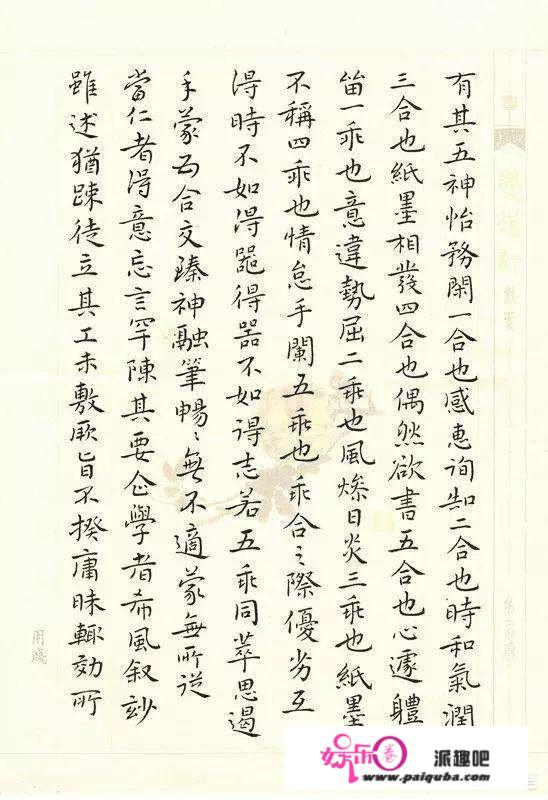 有其五神怡務閑一合也感惠詢知二合也時和氣潤
三合也紙墨相發四合也偶然欲書五合也心遽體
留一乖也意違勢屈二乖也風燥日炎三乖也紙墨
不稱四乖也情怠手闌五乖也乖合之際優劣互
得時不如得器得器不如得志若五乖同萃思遏
手蒙五合交臻神融筆暢〻無不適蒙無所從
當仁者得意忘言罕陳其要企學者希風叙妙
雖述猶疎徒立其工未敷厥旨不揆庸昧輒効所
用牋
娱乐卷 派趣吧
www.paiquba.com